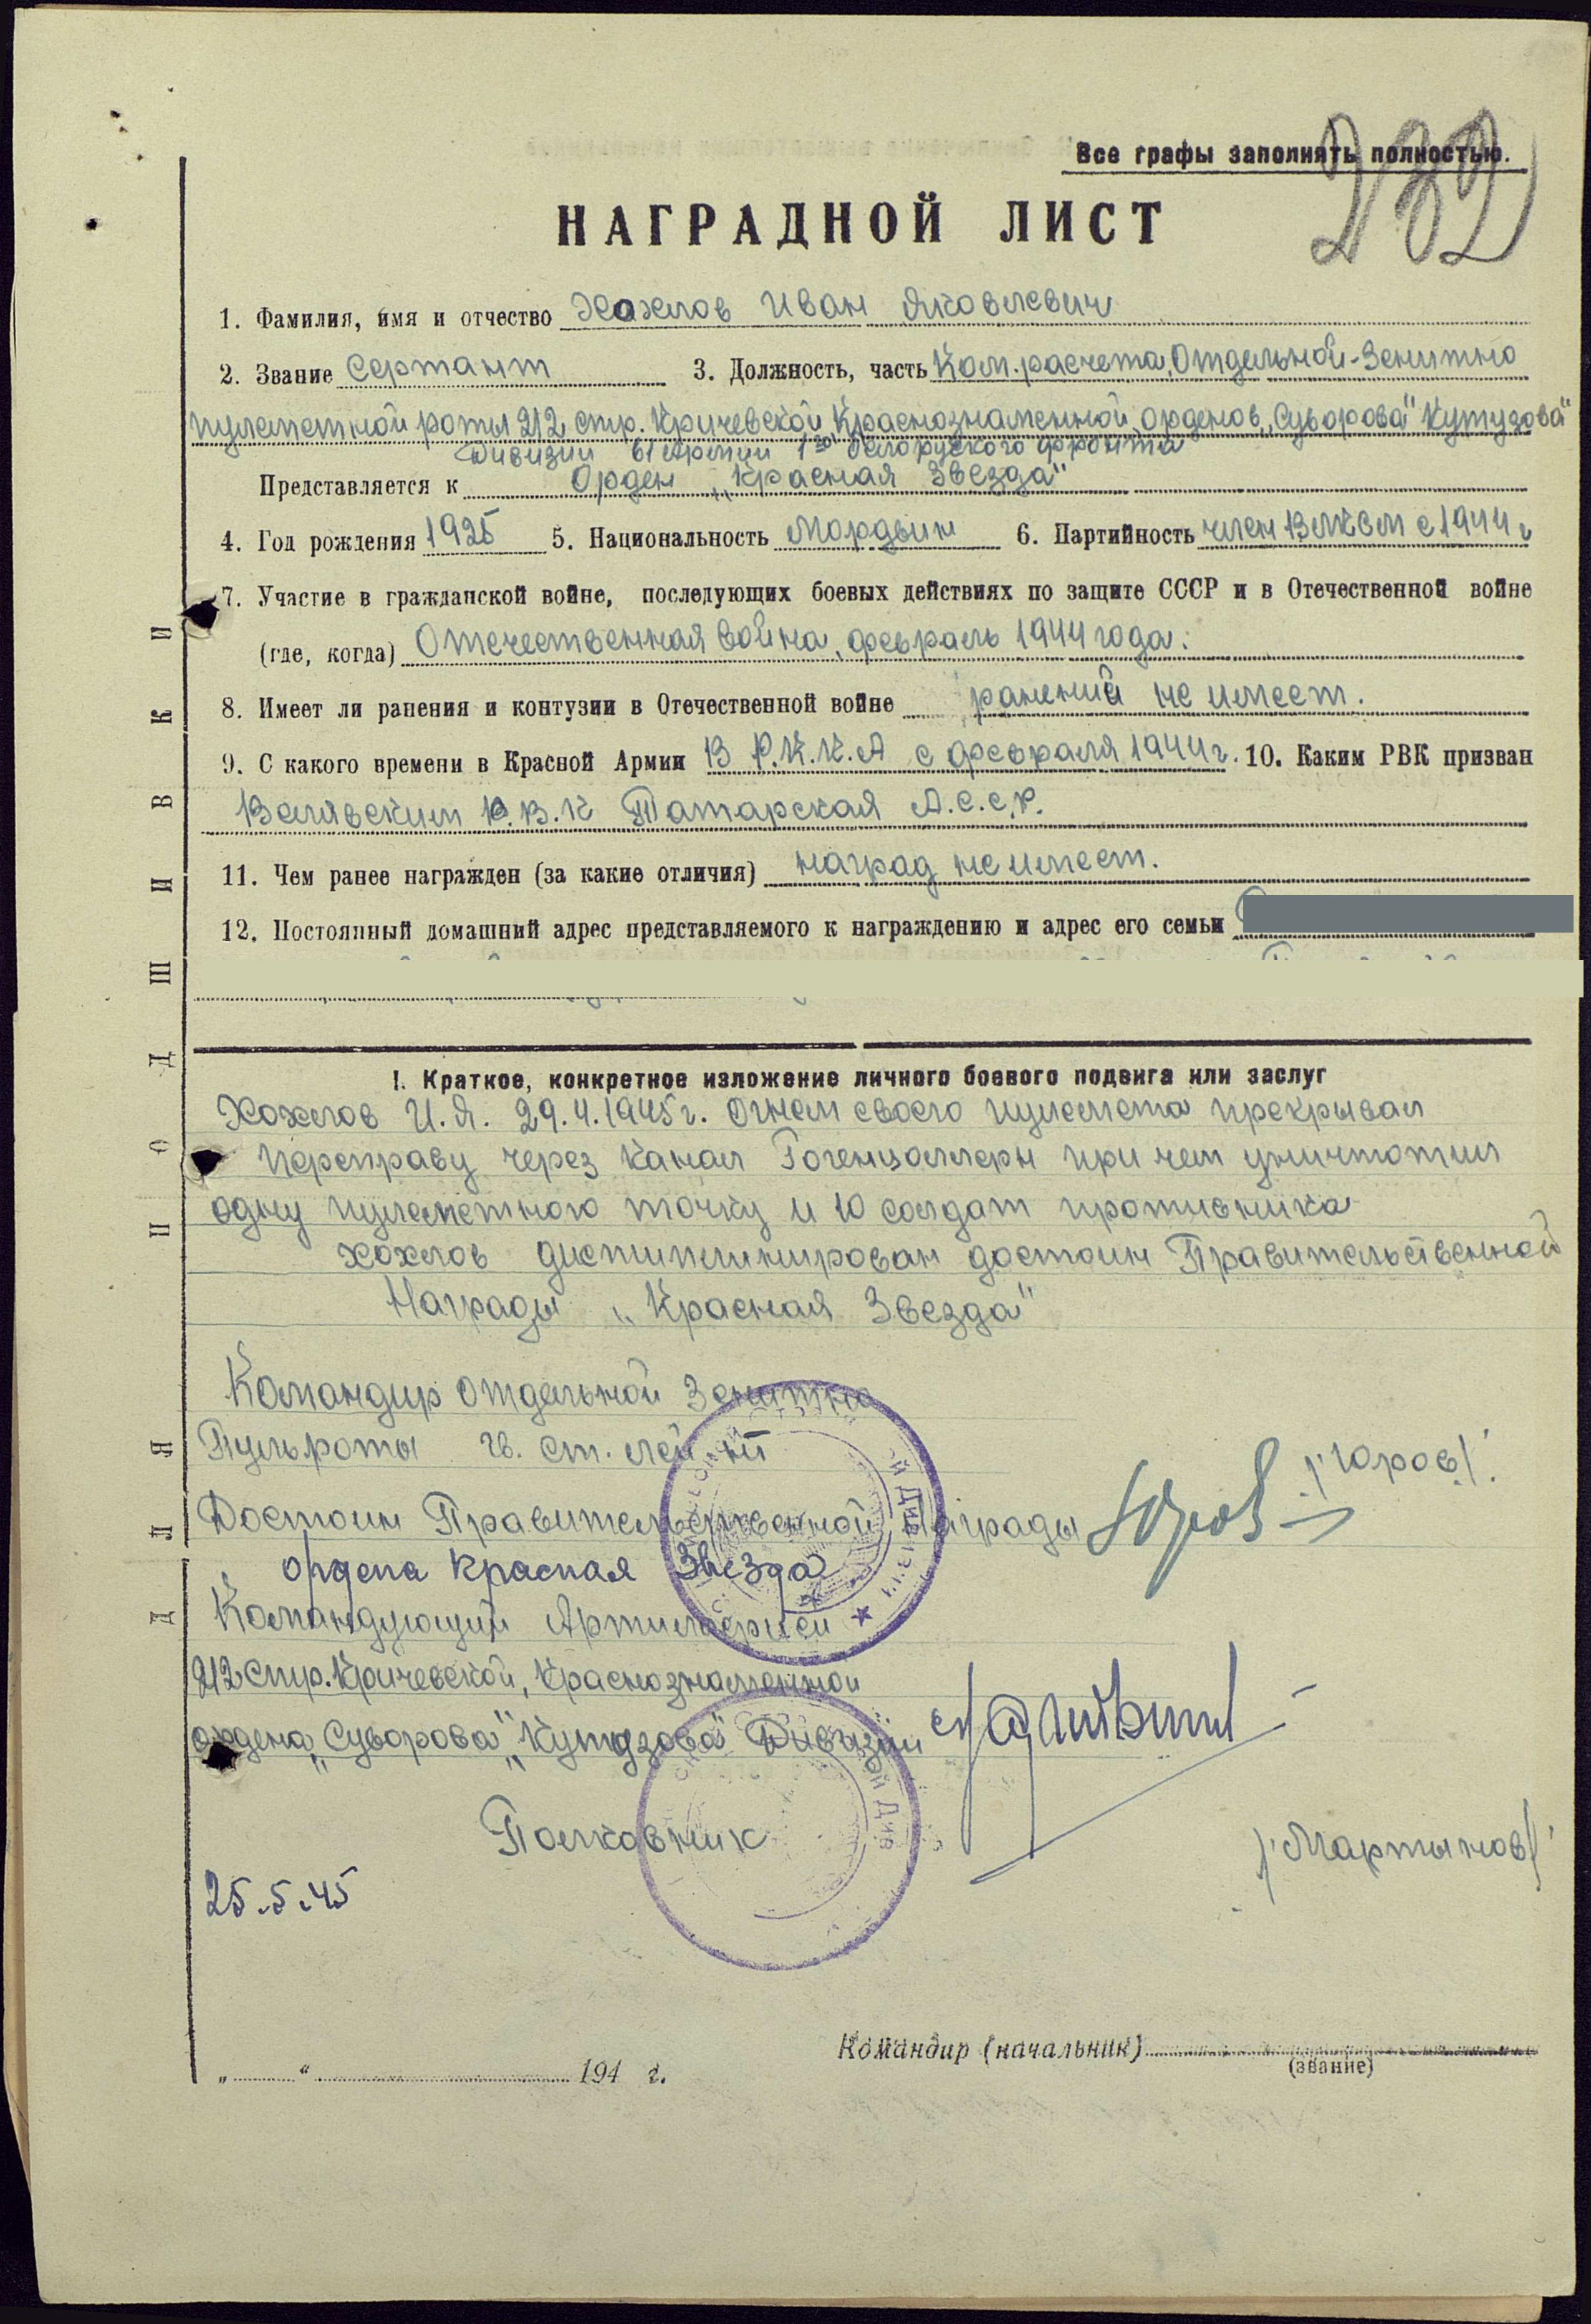 Все графы заполнять полностью.
232
НАГРАДНОЙ ЛИСТ
1. Фамилия, имя и отчество Хохлов Иван Яковлевич
2. Звание Сержант 3. Должность, часть Ком. расчета, Отдельной-Зенитно
пулеметной роты 212 стр. Кричевской Краснознаменной, орденов „Суворова" Кутузова"
Дивизии 61 Армии 1го Белоруского фронта
Представляется к Орден „Красная Звезда"
4. Год рождения 1925 5. Национальность Мордвин 6. Партийность член ВЛКСМ с 1944 г
7. Участие в гражданской войне, последующих боевых действиях по защите СССР и в Отечественной войне
(где, когда) Отечественная война, февраль 1944 года.
8. Имеет ли ранения и контузии в Отечественной войне ранений не имеет.
9. С какого времени в Красной Армии В Р.К.К.А с февраля 1944 г. 10. Каким РВК призван
Р.В.К Татарская А.С.С.Р.
11. Чем ранее награжден (за какие отличия) наград не имеет.
12. Постоянный домашний адрес представляемого к награждению и адрес его семьи
I. Краткое, конкретное изложение личного боевого подвига или заслуг
Хохлов И.Я. 29.4.1945 г. огнем своего пулемета прекрывал
переправу через канал Гогенцоллерн при чем уничтожил
одну пулеметною точку и 10 солдат противника
Хохлов дисциплинирован достоин Правительственной
Награды „Красная Звезда"
Командир отдельной Зенитно
Пульроты гв. ст. лей-нт /Юров/.
Достоин Правительственной Награды
ордена Красная Звезда
Командующий Артилерией
212 стр. Кричевской, Краснознаменной
ордена „Суворова" „Кутузова" Дивизии
Полковник /Мартынов/
25.5.45
Командир (начальник)
(звание)
„ “ 194 г.
ДЛЯ ПОДШИВКИ